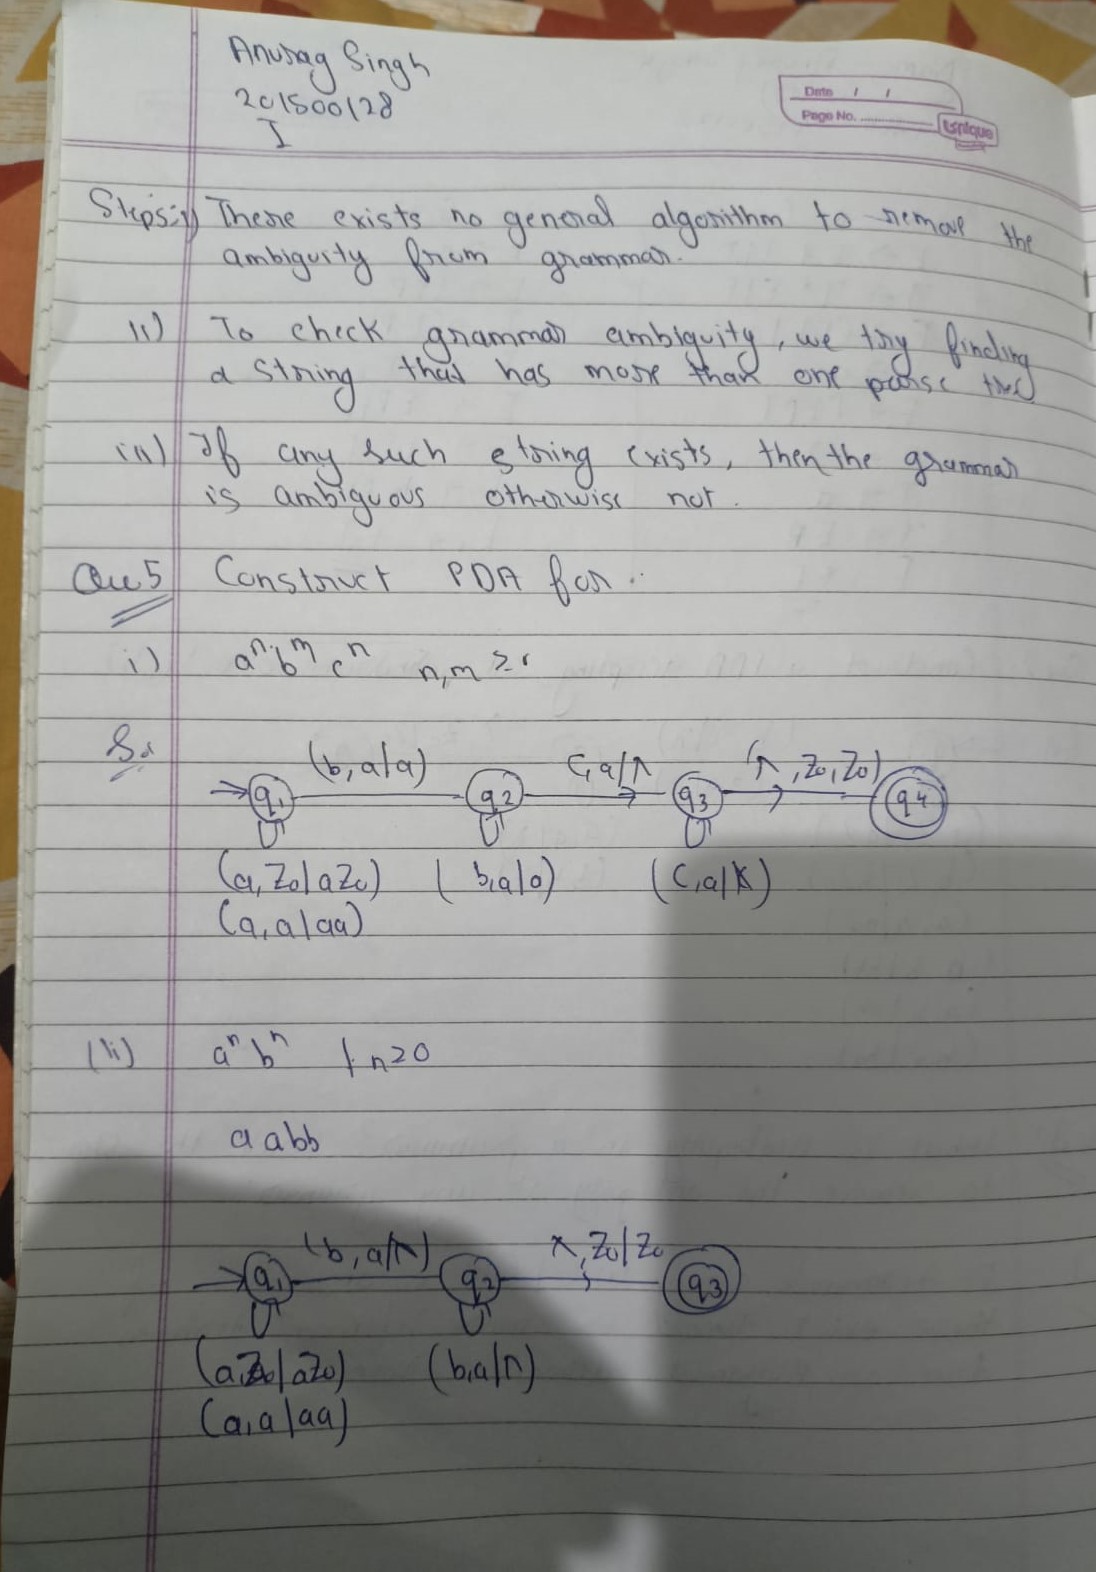 Anurag Singh
201500128
I
Date / /
Page No.
Steps:- i) There exists no general algorithm to remove the
ambiguity from grammar.
ii) To check grammar ambiguity, we try finding
a string that has more than one parse tree
iii) If any such string exists, then the grammar
is ambiguous otherwise not.
Que 5 Construct PDA for :
i) aⁿ bᵐ cⁿ n,m ≥
(b, a/a) c, a/^ (^, Z₀, Z₀)
q₁ q2 q3 q4
(a, Z₀/aZ₀) (b,a/a) (c,a/^)
(a, a/aa)
(ii) aⁿ bⁿ | n≥0
a abb
(b, a/^) ^, Z₀/Z₀
q₁ q2 q3
(a, Z₀/aZ₀) (b,a/^)
(a, a/aa)